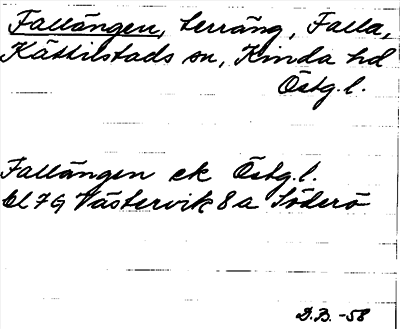 Fallängen, terräng, Falla,
Kättilstads sn, Kinda hd
Östg.l.
Fallängen ek Östg.l.
bl 79 Västervik 8a Söderö
D.B. -58